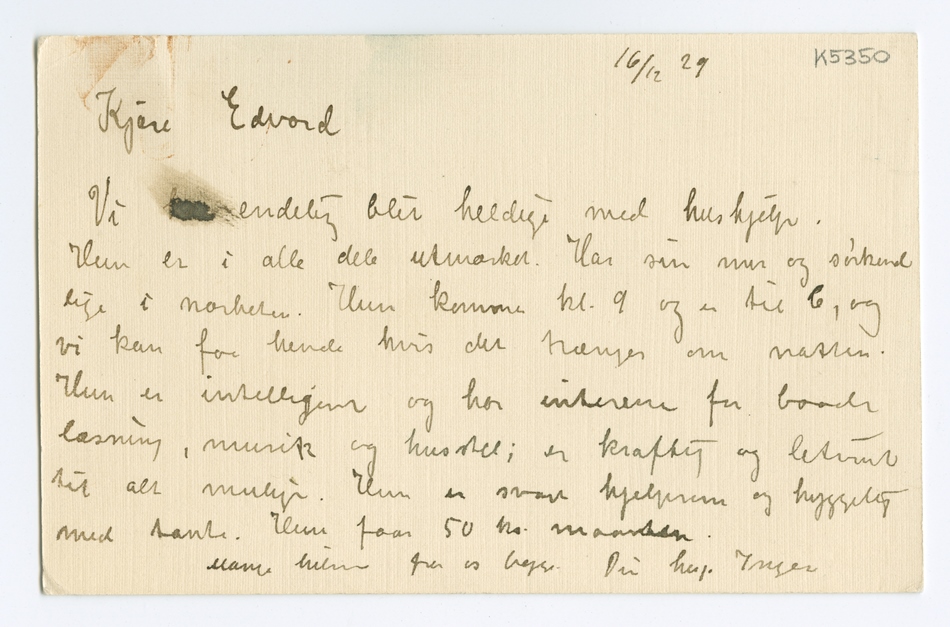 16/12 29
K5350
Kjære Edvard
Vi endelig blit heldige med hushjelp.
Hun er i alle dele utmærket. Har sin mor og søskend
lige i nærheten. Hun kommer kl. 9 og er til 6, og
vi kan faa hende hvis det trænges om natten.
Hun er intelligent og har interesse for baade
læsning, musik og husstel; er kraftig og letvint
til alt mulig. Hun er svært hjelpsom og hyggelig
med tante. Hun faar 50 kr. maaneden.
Mange hilsner fra os begge. Din heng. Inger